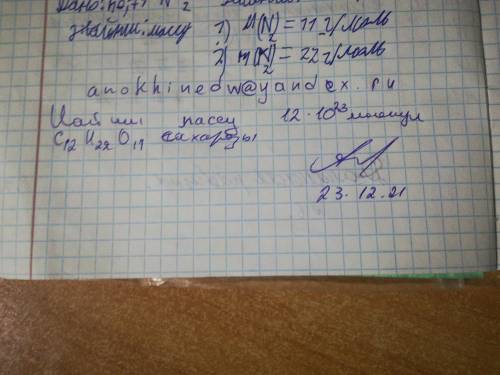 N 2
1) M(N2) = 11 г/моль
2) m(N2) = 22 г/моль
anokhinedw@yandex.ru
Найти массу 12 · 10^23 молекул
C12 H22 O11 сахарозы
23.12.21